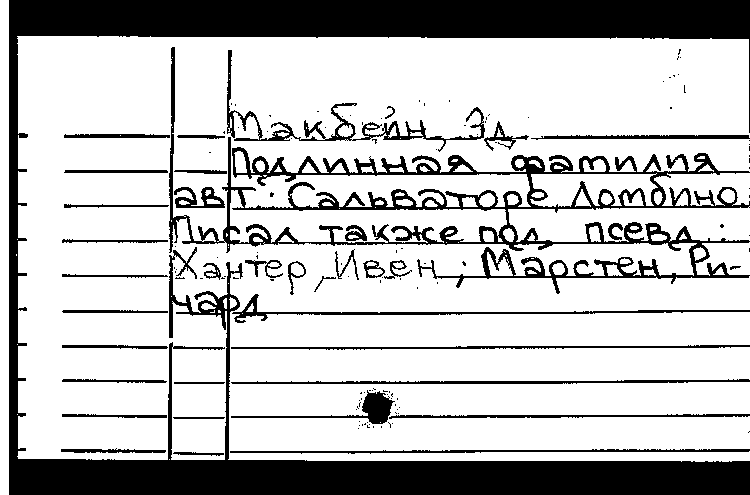 Макбейн, Эд
Подлинная фамилия
авт.: Сальваторе, Ломбино.
Писал также под псевд.:
Хантер, Ивен; Марстен, Ри-
чард